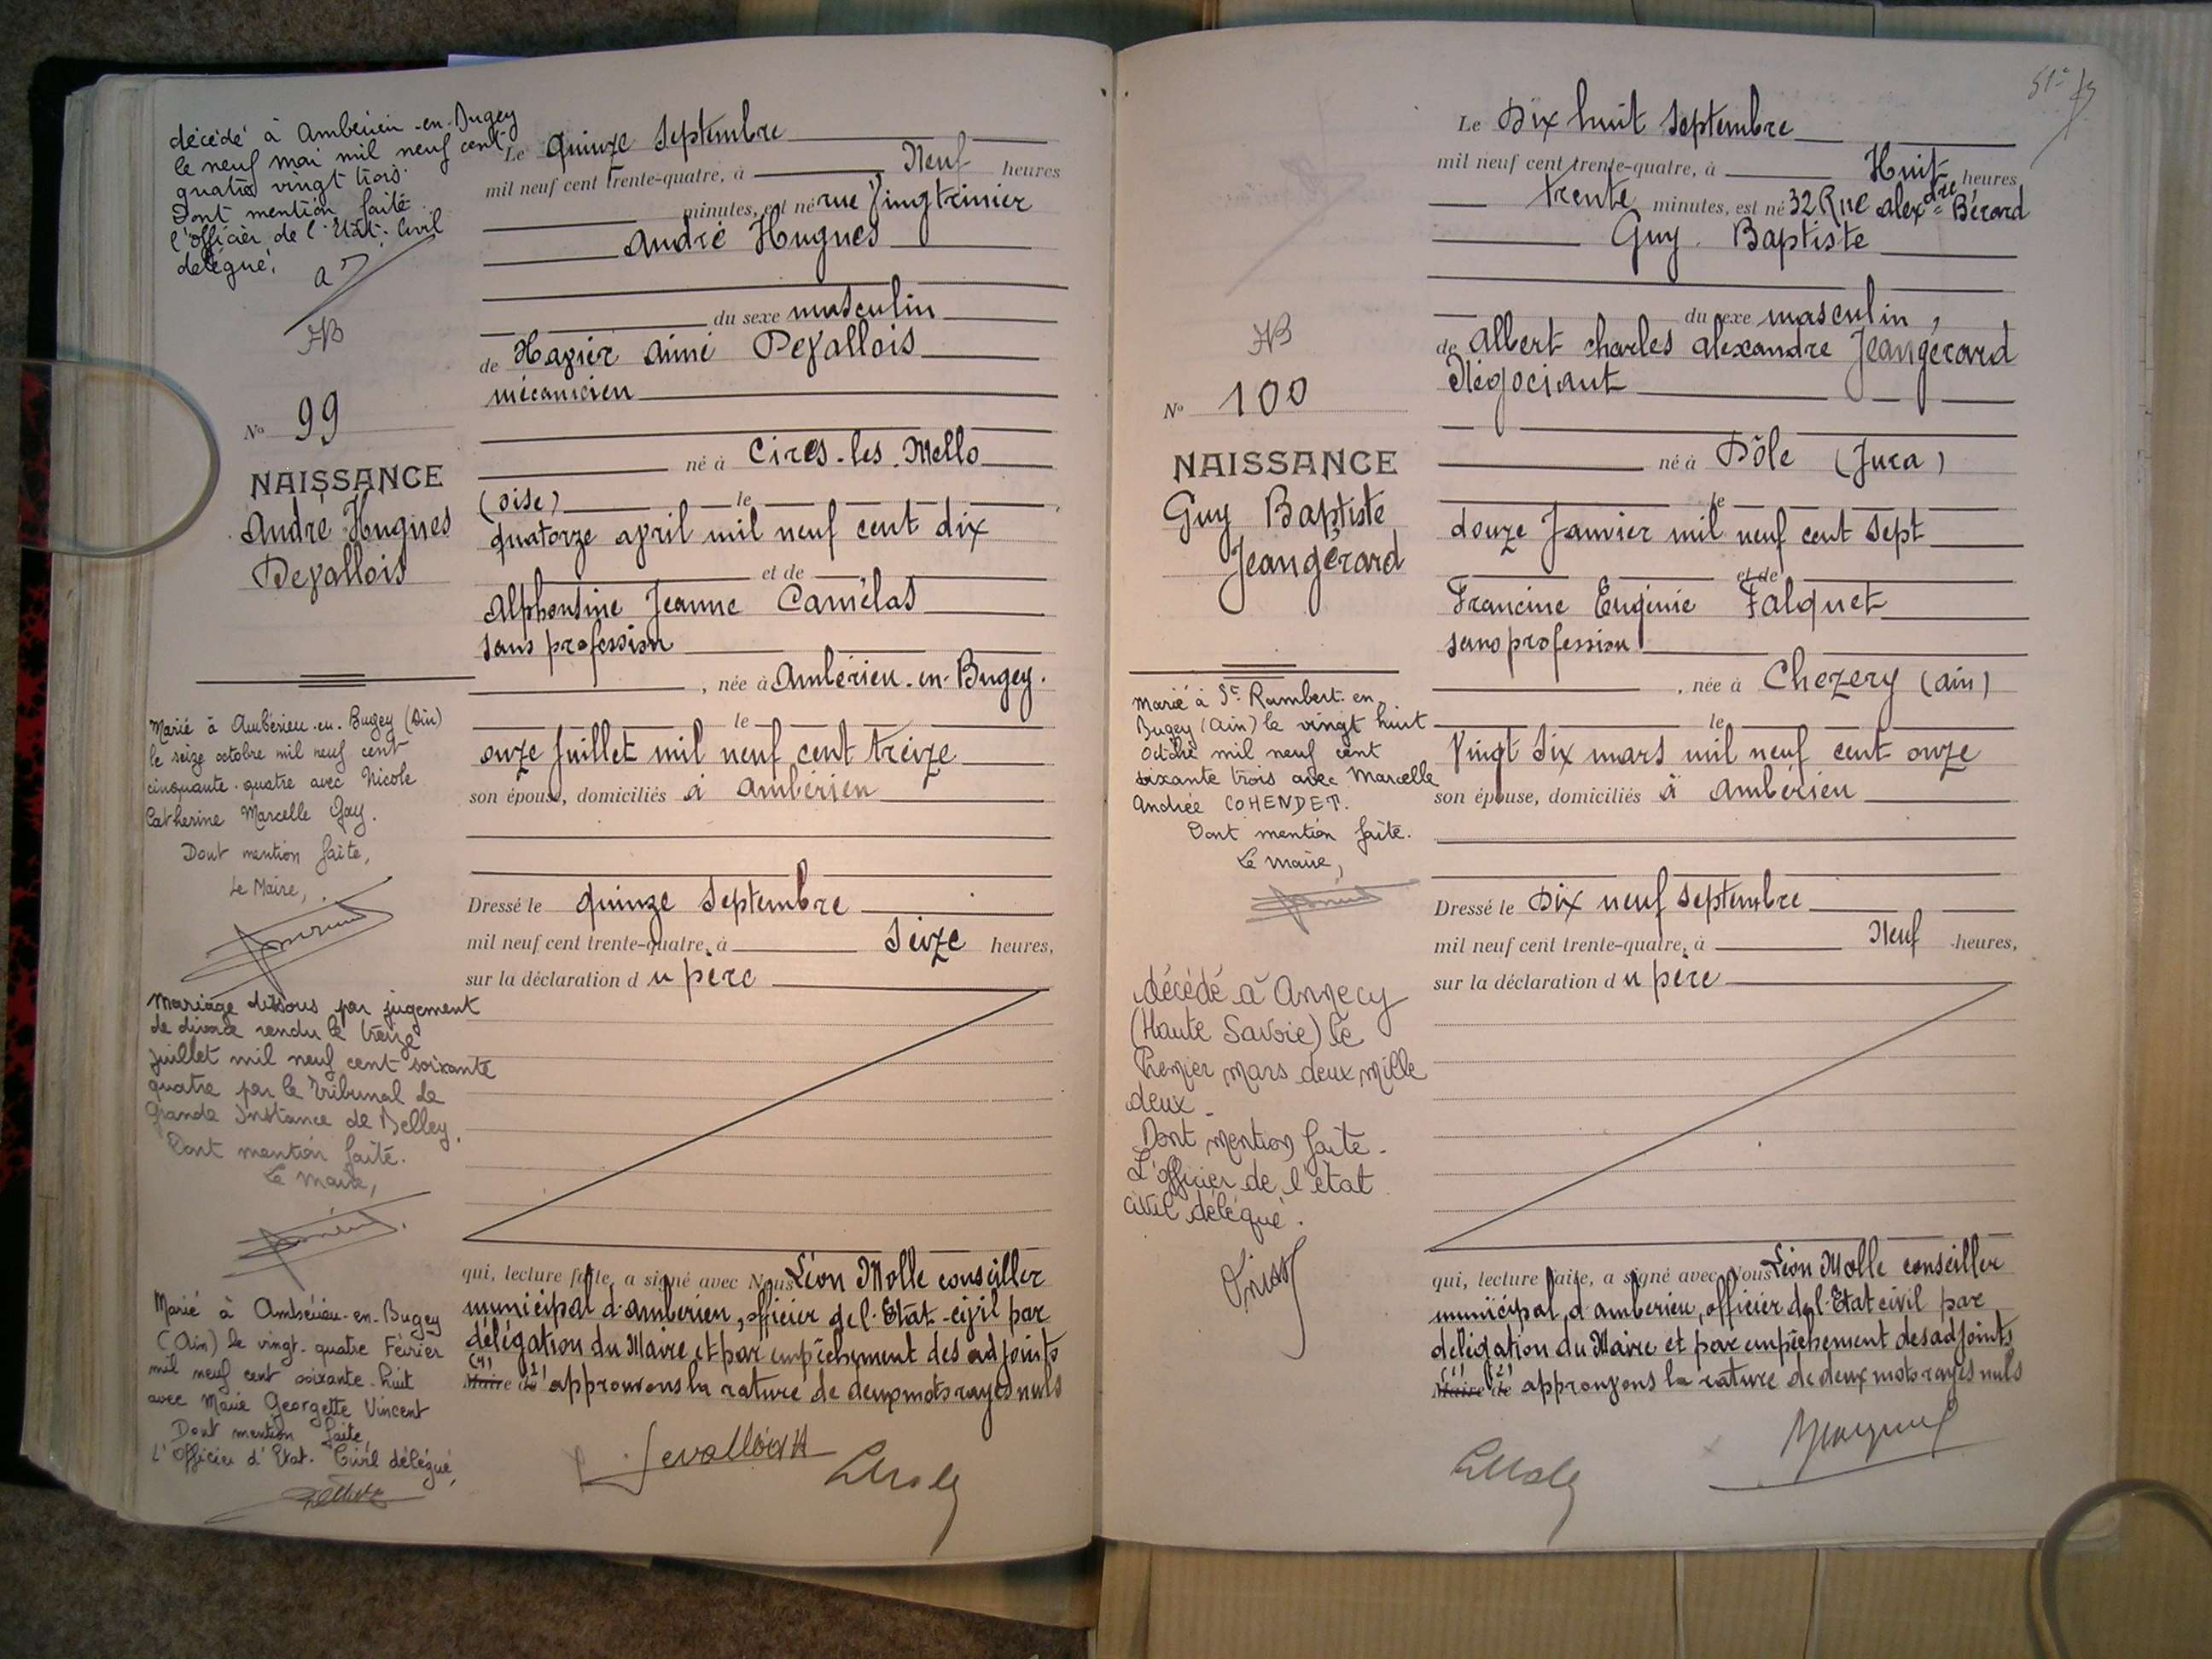 décédé à Ambérieu-en-Bugey
le neuf mai mil neuf cent
quatre vingt trois.
Dont mention faite
l'officier de l'Etat-Civil
délégué,
N° 99
NAISSANCE
André Hugues
Devallois
Marié à Ambérieu-en-Bugey (Ain)
le seize octobre mil neuf cent
cinquante-quatre avec Nicole
Catherine Marcelle Gay.
Dont mention faite,
Le Maire,
Mariage dissous par jugement
de divorce rendu le treize
juillet mil neuf cent soixante
quatre par le Tribunal de
Grande Instance de Belley.
Dont mention faite.
Le Maire,
Marié à Ambérieu-en-Bugey
(Ain) le vingt-quatre Février
mil neuf cent soixante-huit
avec Marie Georgette Vincent
Dont mention faite,
l'Officier d'Etat-Civil délégué,
Le Quinze Septembre
mil neuf cent trente-quatre, à Neuf heures
minutes, est né rue Vingtrinier
André Hugues
du sexe masculin
de Xavier Aimé Devallois
mécanicien
né à Cires-les-Mello
(Oise) le
quatorze avril mil neuf cent dix
et de
Alphonsine Jeanne Camélas
sans profession
, née à Ambérieu-en-Bugey.
le
onze Juillet mil neuf cent treize
son épouse, domiciliés à Ambérieu
Dressé le quinze Septembre
mil neuf cent trente-quatre, à Seize heures,
sur la déclaration du père
qui, lecture faite, a signé avec Nous Léon Molle conseiller
municipal d'Ambérieu, officier de l'Etat-civil par
délégation du Maire et par empêchement des adjoints
Maire de (1) (2) approuvons la rature de deux mots rayés nuls
51e
N° 100
NAISSANCE
Guy Baptiste
Jeangérard
Marié à St Rambert-en
Bugey (Ain) le vingt huit
Octobre mil neuf cent
soixante trois avec Marcelle
Andrée COHENDET.
Dont mention faite.
Le Maire,
décédé à Annecy
(Haute Savoie) le
Premier mars deux mille
deux.
Dont mention faite.
L'officier de l'état
civil délégué.
Le Dix huit Septembre
mil neuf cent trente-quatre, à Huit heures
trente minutes, est né 32 Rue Alexdre Bérard
Guy Baptiste
du sexe masculin,
de Albert Charles Alexandre Jeangérard
Négociant
né à Dôle (Jura)
le
douze Janvier mil neuf cent sept
et de
Francine Eugénie Falquet
sans profession
, née à Chezery (Ain)
le
Vingt Six mars mil neuf cent onze
son épouse, domiciliés à Ambérieu
Dressé le Dix neuf Septembre
mil neuf cent trente-quatre, à Neuf heures,
sur la déclaration du père
qui, lecture faite, a signé avec Nous Léon Molle conseiller
municipal, d'Ambérieu, officier de l'Etat civil par
délégation du Maire et par empêchement des adjoints
Maire de (1) (2) approuvons la rature de deux mots rayés nuls